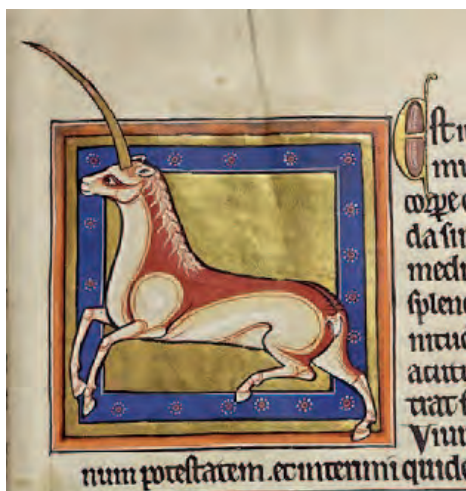 Est m
mu
corpe e
da sim
medi
splen
nitud
acutu
trat f
Viuu
num potestatem. et interimi quide